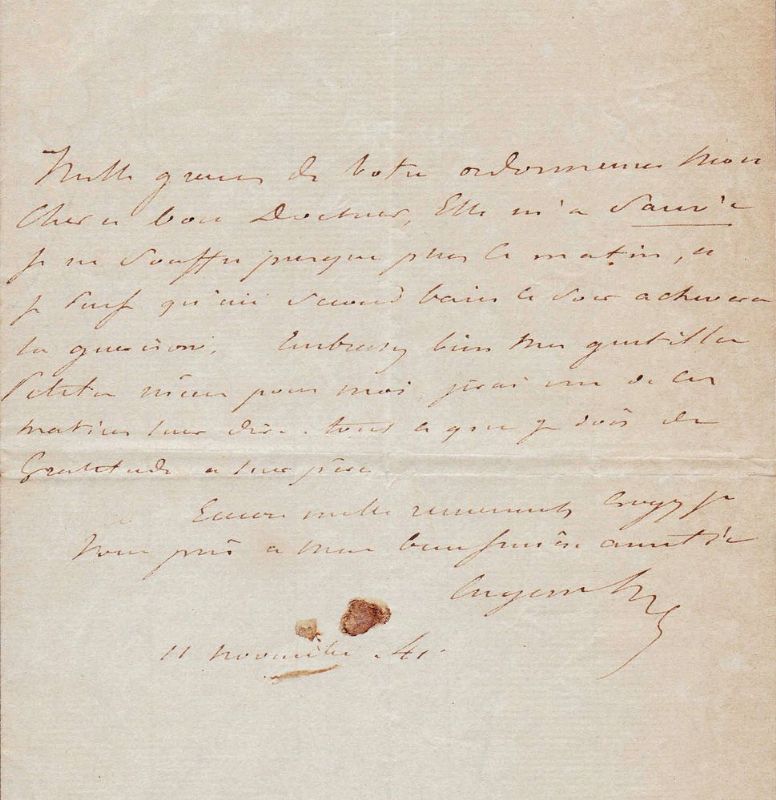 Mille graces de votre ordonnance mon
cher et bon Docteur, Elle m'a sauvé
je ne souffre presque plus le matin, et
je pense qu'un second bain le soir achevera
la guerison. Embrassez bien mes gentilles
petites nièces pour moi, j'irai une de ces
matinées leur dire tout ce que je dois de
gratitude a leur père
Encore mille remerciements croyez je
vous prie a ma bien sincère amitié
Eugene Sue
11 novembre 41.